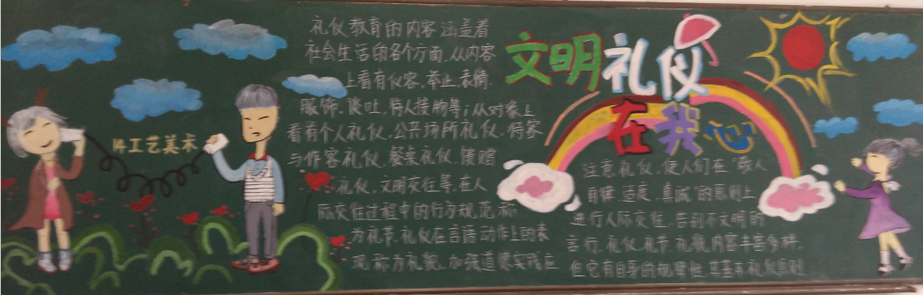 礼仪教育的内容涵盖着
社会生活的各个方面.从内容
上看有仪容.举止.表情.
服饰.谈吐.待人接物等;从对象上
看有个人礼仪.公共场所礼仪.待客
与作客礼仪.餐桌礼仪.馈赠
礼仪.文明交往等.在人
际交往过程中的行为规范.称
为礼节.礼仪在言语动作上的表
现.称为礼貌.加强道德实践应
14工艺美术
文明礼仪
在我心
注意礼仪.使人们在"敬人
自律.适度.真诚"的原则上
进行人际交往.告别不文明的
言行.礼仪.礼节.礼貌内容丰富多样.
但它有自身的规律性.其基本礼仪原则